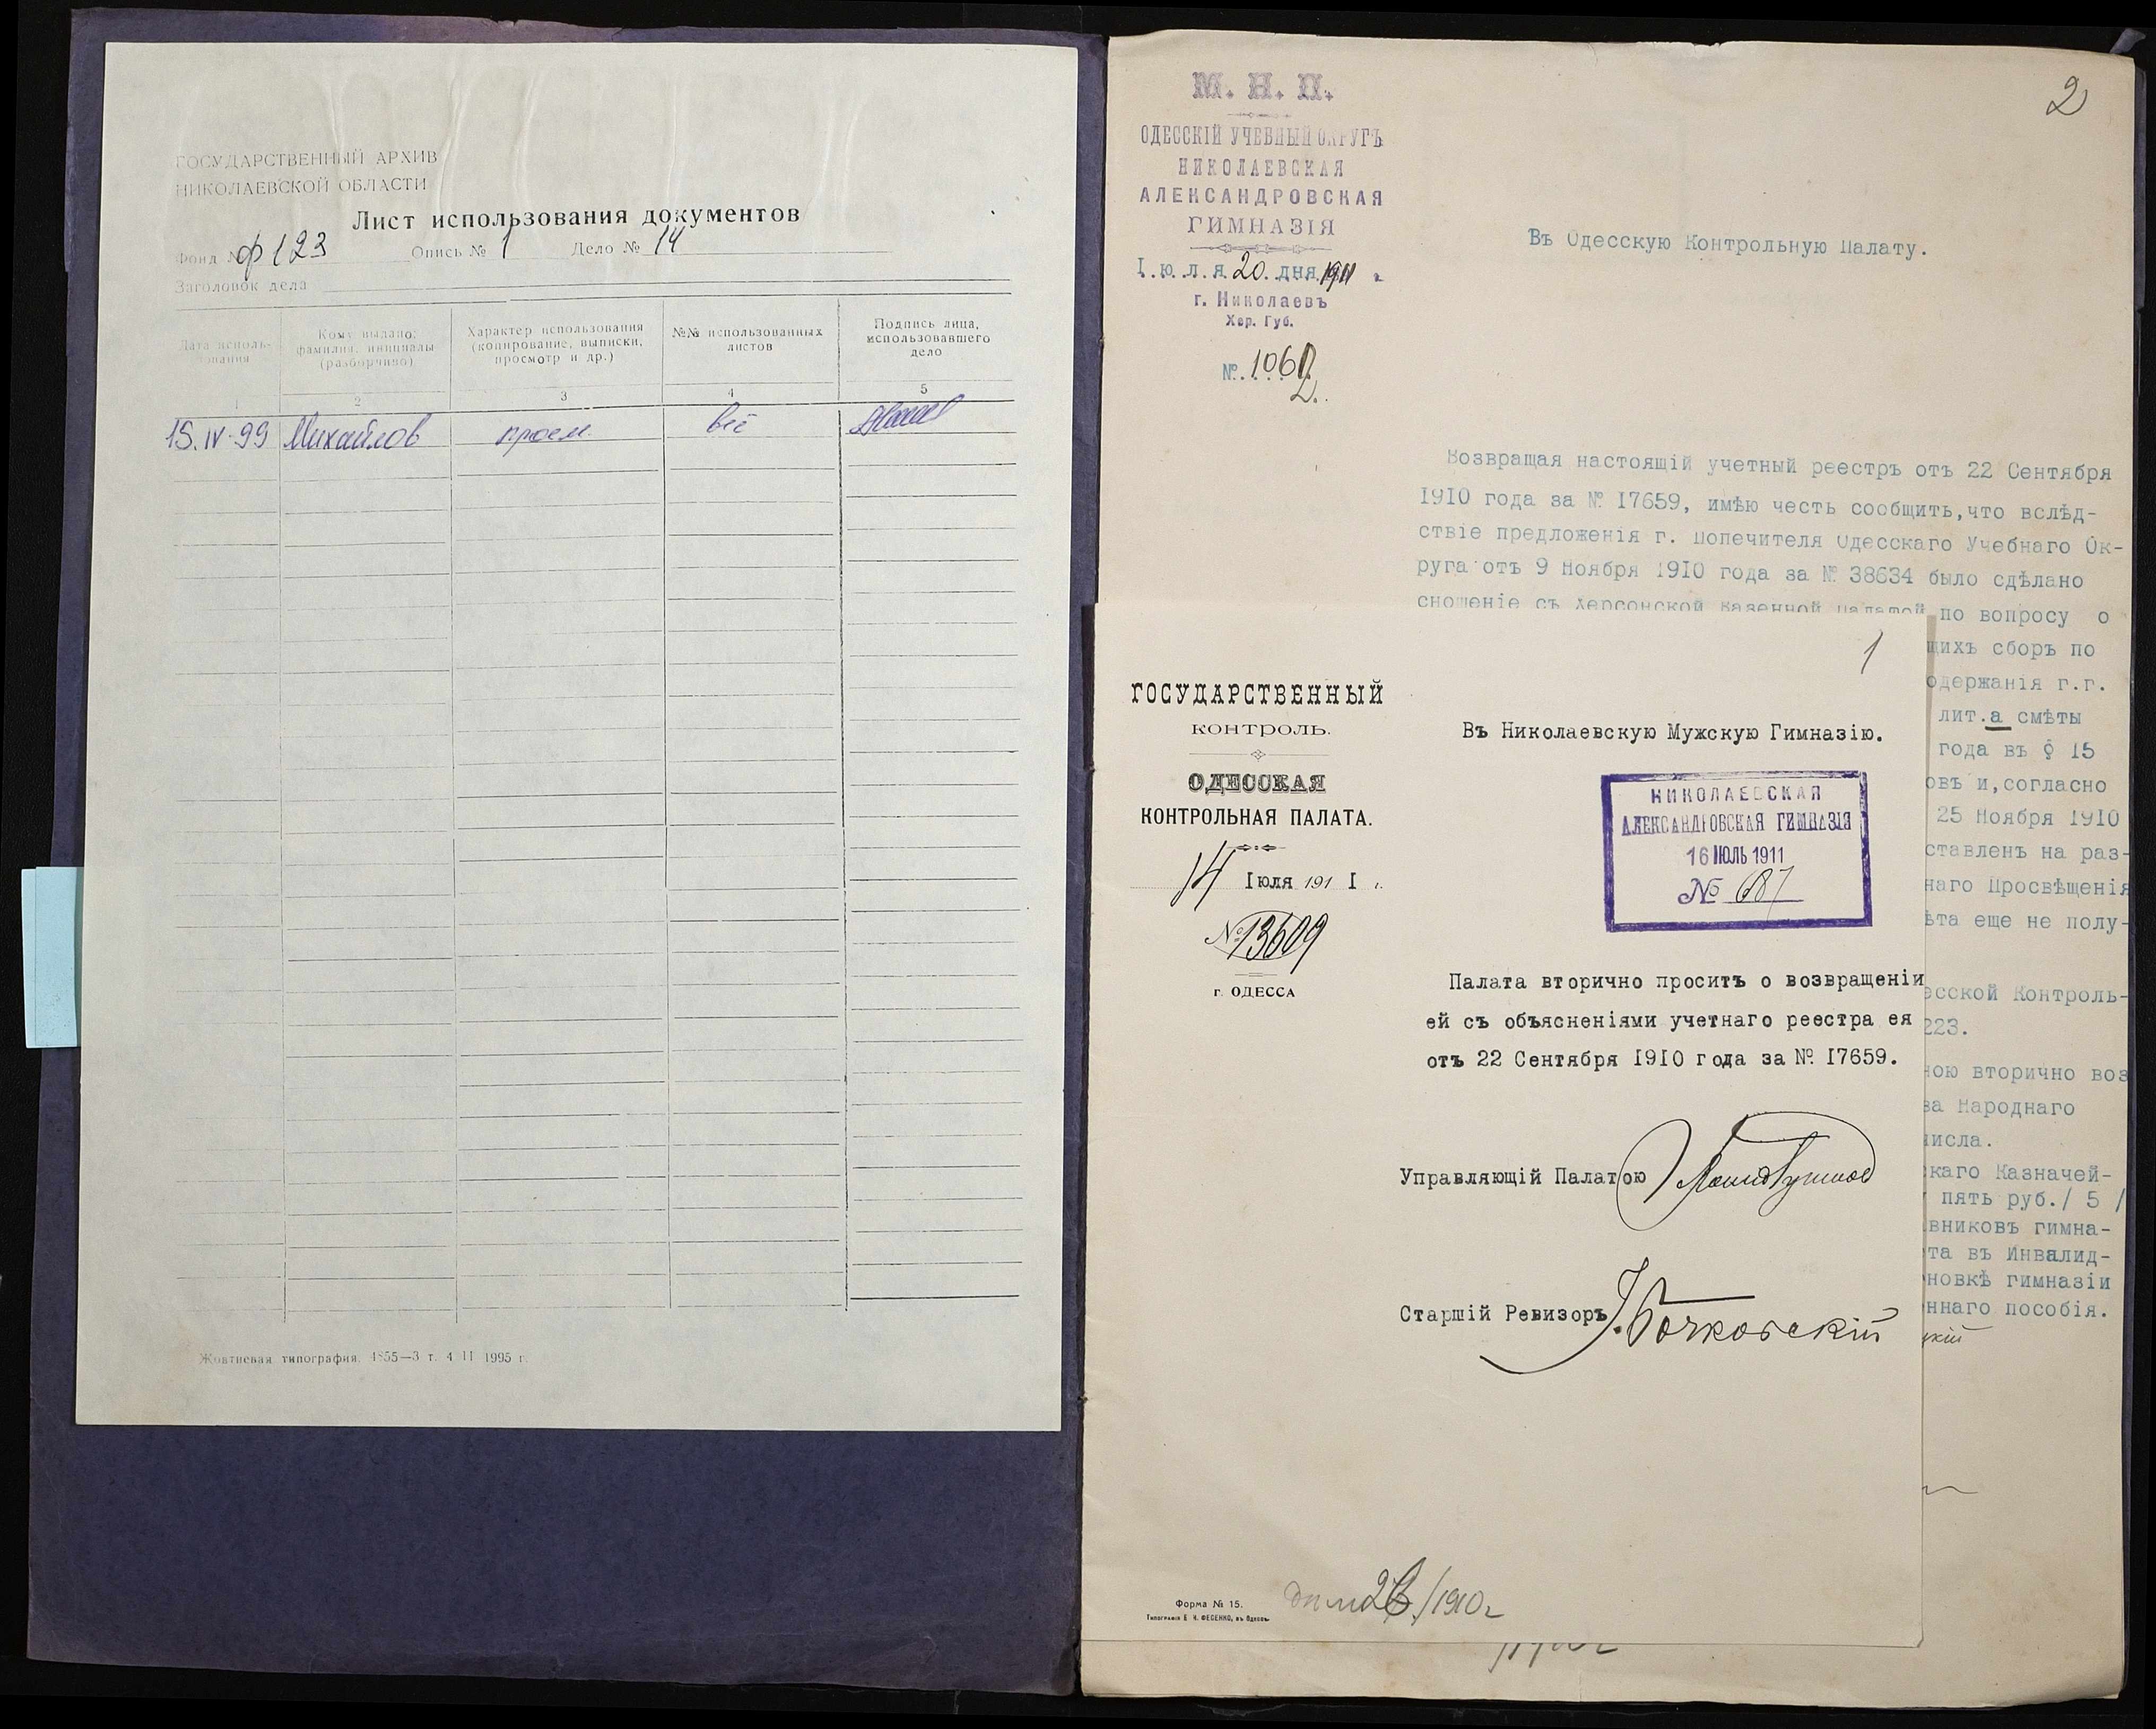 ГОСУДАРСТВЕННЫЙ АРХИВ
НИКОЛАЕВСКОЙ ОБЛАСТИ
Лист использования документов
Фонд № ф 123 Опись № 1 Дело № 14
Заголовок дела
Дата исполь-
зования
Кому выдано:
фамилия, инициалы
(разборчиво)
Характер использования
(копирование, выписки,
просмотр и др.)
№№ использованных
листов
Подпись лица,
использовавшего
дело
1 2 3 4 5
15.IV.99 Михайлов просм. всё
Жовтневая типография. 4855—3 т. 4 11 1995 г.
2
М. Н. П.
ОДЕССКІЙ УЧЕБНЫЙ ОКРУГЪ
НИКОЛАЕВСКАЯ
АЛЕКСАНДРОВСКАЯ
ГИМНАЗІЯ
Іюля 20 дня 1911 г.
г. Николаевъ
Хер. Губ.
№ 1061
Въ Одесскую Контрольную Палату.
Возвращая настоящій учетный реестръ отъ 22 Сентября
1910 года за № 17659, имѣю честь сообщить,что вслѣд-
ствіе предложенія г. Попечителя Одесскаго Учебнаго Ок-
руга отъ 9 Ноября 1910 года за № 38634 было сдѣлано
сношеніе съ Херсонской Казенной Палатой по вопросу о
щихъ сборъ по
одержанія г.г.
лит.а смѣты
года въ § 15
овъ и,согласно
25 Ноября 1910
ставленъ на раз-
наго Просвѣщенія
ѣта еще не полу-
есской Контроль-
223.
ною вторично воз
ва Народнаго
числа.
скаго Казначей-
пять руб./ 5 /
вниковъ гимна-
та въ Инвалид-
новкѣ гимназіи
ннаго пособія.
кій
1
ГОСУДАРСТВЕННЫЙ
КОНТРОЛЬ.
ОДЕССКАЯ
КОНТРОЛЬНАЯ ПАЛАТА.
14 Іюля 191 I г.
№ 13609
г. ОДЕССА
Въ Николаевскую Мужскую Гимназію.
НИКОЛАЕВСКАЯ
АЛЕКСАНДРОВСКАЯ ГИМНАЗІЯ
16 ІЮЛЬ 1911
№ 687
Палата вторично проситъ о возвращеніи
ей съ объясненіями учетнаго реестра ея
отъ 22 Сентября 1910 года за № 17659.
Управляющій Палатою
Старшій Ревизоръ І. Бочковскій
Форма № 15.
Типографія Е. И. ФЕСЕНКО, въ Одессѣ.
26/1910 г